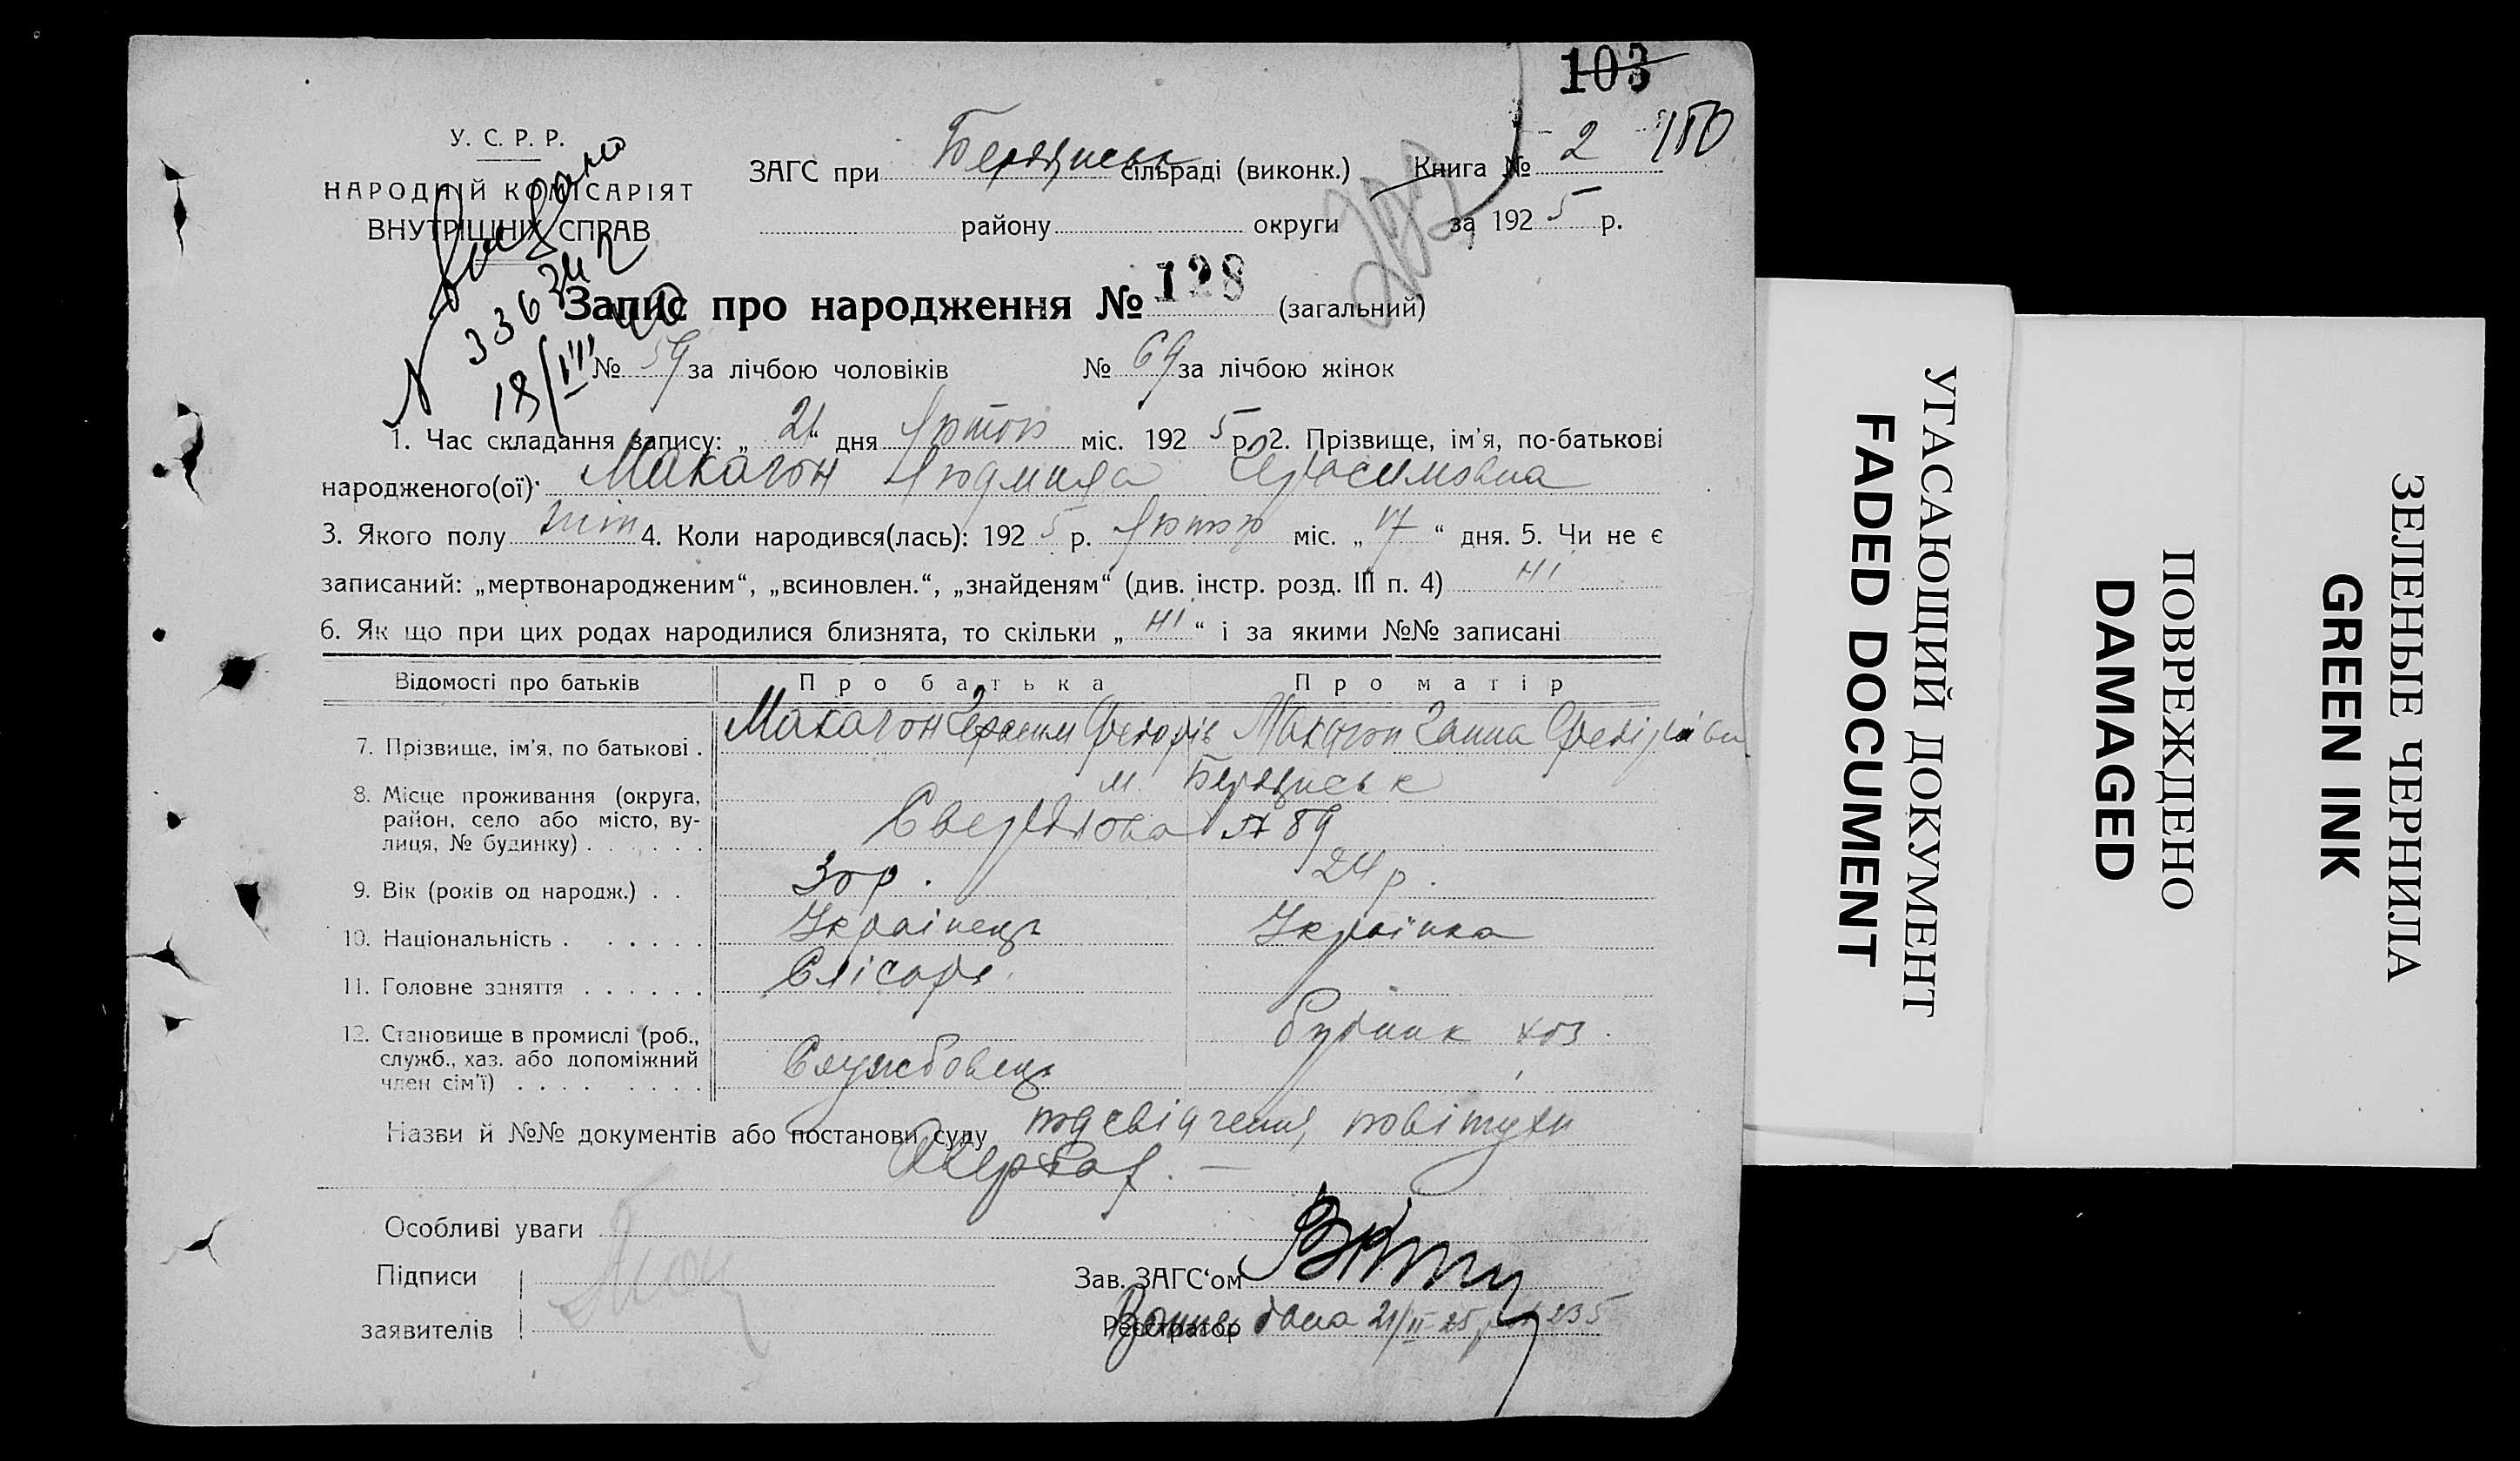 103
180
У. С. Р. Р.
НАРОДНІЙ КОМІСАРІЯТ
ВНУТРІШНІХ СПРАВ
ЗАГС при Бердянськ сільраді (виконк.) Книга № 2
району округи за 1925 р.
Запис про народження № 128 (загальний)
№ 59 за лічбою чоловіків № 69 за лічбою жінок
18/III
1. Час складання запису: „ 21 “ дня Лютого міс. 1925 р. 2. Прізвище, ім'я, по-батькові
народженого(ої) Макагон Людмила Герасимовна
3. Якого полу жін 4. Коли народився(лась): 1925 р. Лютого міс. „ 17 “ дня. 5. Чи не є
записаний: „мертвонародженим“, „всиновлен.“, „знайденям“ (див. інстр. розд. III п. 4) ні
6. Як що при цих родах народилися близнята, то скільки „ ні “ і за якими №№ записані
Відомості про батьків Про батька Про матір
7. Прізвище, ім'я, по батькові . Макагон Герасим Федорів Макагон Ганна
8. Місце проживання (округа, район, село або місто, вулиця, № будинку) . . . . . . м. Бердянськ
Свердлова № 89
9. Вік (років од народж.) . . 30 р. 24 р.
10. Національність . . . . . . Українець Українка
11. Головне заняття . . . . . . Слісарь
12. Становище в промислі (роб., служб., хаз. або допоміжний член сім'ї) . . . . . . . . Службовець хоз.
Назви й №№ документів або постанови суду посвідчення повітухи
Особливі уваги
Підписи
заявителів
Зав. ЗАГС‘ом
Реєстратор
дана 21/II-25 р. № 235
УГАСАЮЩИЙ ДОКУМЕНТ
FADED DOCUMENT
ПОВРЕЖДЕНО
DAMAGED
ЗЕЛЕНЫЕ ЧЕРНИЛА
GREEN INK